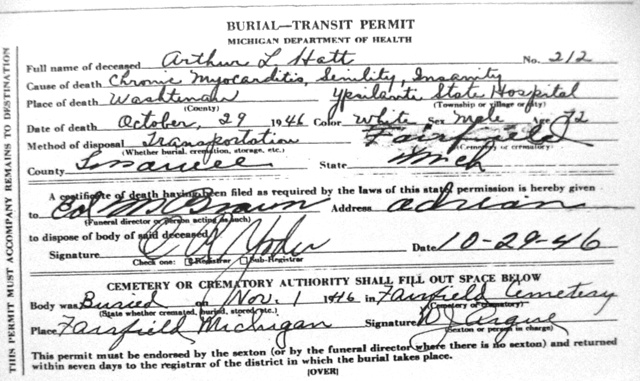 BURIAL—TRANSIT PERMIT
MICHIGAN DEPARTMENT OF HEALTH
Full name of deceased Arthur L Hatt No. 212
Cause of death Chronic Myocarditis, Senility, Insanity
Place of death Washtenaw Ypsilanti State Hospital
(County) (Township or village or city)
Date of death October, 29 1946 Color White Sex Male Age 72
Method of disposal Transportation Fairfield
(Whether burial, cremation, storage, etc.) (Cemetery or crematory)
County Lenawee State Mich
A certificate of death having been filed as required by the laws of this state permission is hereby given
to Brown Address Adrian
(Funeral director or person acting as such)
to dispose of body of said deceased.
Signature Yoder Date 10-29-46
Check one: Registrar Sub-Registrar
CEMETERY OR CREMATORY AUTHORITY SHALL FILL OUT SPACE BELOW
Body was Buried on Nov. 1 1946 in Fairfield Cemetery
(State whether cremated, buried, stored, etc.) (Cemetery or crematory)
Place Fairfield Michigan Signature Argue
(Sexton or person in charge)
This permit must be endorsed by the sexton (or by the funeral director where there is no sexton) and returned
within seven days to the registrar of the district in which the burial takes place.
[OVER]
THIS PERMIT MUST ACCOMPANY REMAINS TO DESTINATION